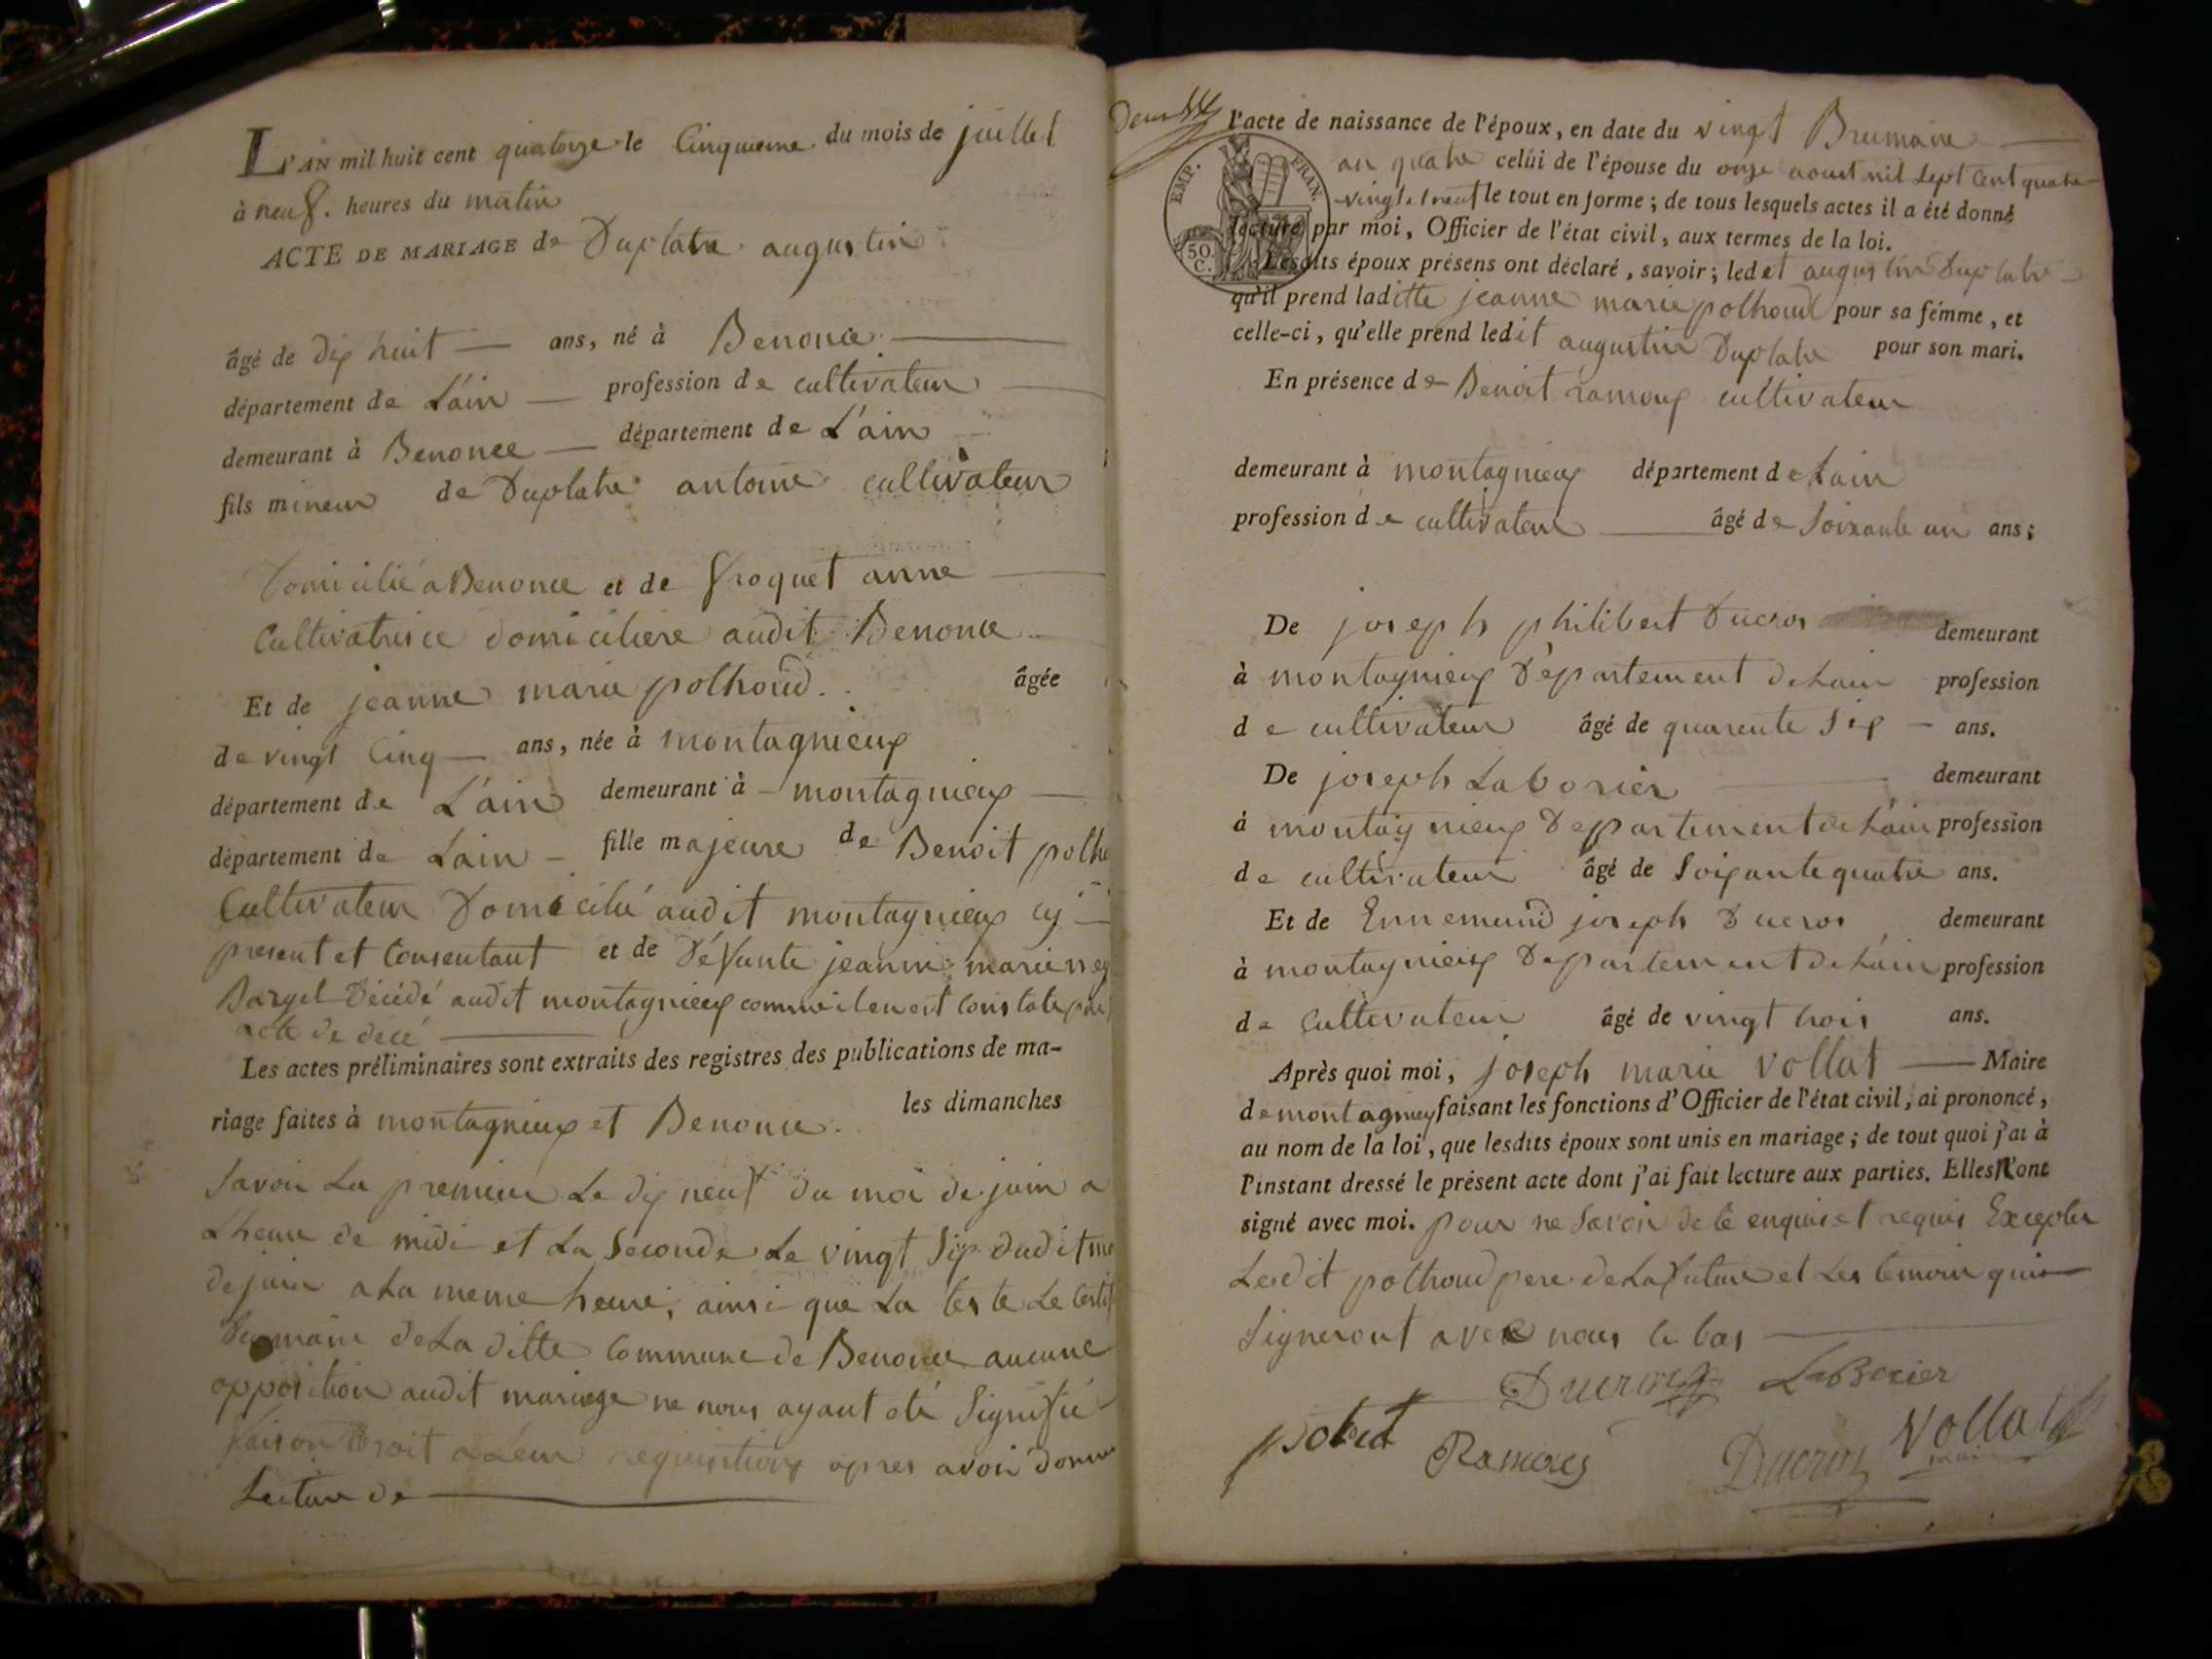 L'AN mil huit cent quatorze le Cinquieme du mois de juillet
à neuf. heures du matin
ACTE DE MARIAGE de Duplatre augustin
âgé de dix huit — ans, né à Benonce —
département de L'ain — profession de cultivateur —
demeurant à Benonce — département de L'ain
fils mineur de Duplatre antoine cultivateur
Domicilié a Benonce et de froquet anne —
Cultivatrice domiciliere audit Benonce
Et de jeanne marie polhoud. âgée
de vingt Cinq — ans, née à montagnieux
département de L'ain demeurant à montagnieux —
département de Lain — fille majeure de Benoit polho
Cultivateur Domicilié audit montagnieux cy —
present et Consentant et de Défunte jeanne marie
Bargel Décédé audit montagnieux comme il en est Constaté par
acte de decé —
Les actes préliminaires sont extraits des registres des publications de ma-
riage faites à montagnieux et Benonce. les dimanches
Savoir La premiere Le dix neuf du moi de juin a
Lheure de midi et La Seconde Le vingt Six dudit mo
de juin a La meme heure, ainsi que La teste Le certif
du maire de La ditte Commune de Benonce aucune
opposition audit mariage ne nous ayant eté Signifié
faison droit a Leur requisitions apres avoir donne
Lecture de —
l'acte de naissance de l'époux, en date du vingt Brumaire —
EMP. FRAN.
50 C.
an quatre celui de l'épouse du onze aoust mil Sept Cent quatre-
vingt et neuf le tout en forme ; de tous lesquels actes il a été donné
lecture par moi, Officier de l'état civil, aux termes de la loi.
Lesdits époux présens ont déclaré, savoir ; ledit augustin Duplatre —
qu'il prend laditte jeanne marie polhoud pour sa fémme, et
celle-ci, qu'elle prend ledit augustin Duplatre pour son mari.
En présence de Benoit ramoux cultivateur
demeurant à montagnieux département de Lain
profession de cultivateur — âgé de Soixante un ans ;
De joseph philibert Ducros demeurant
à montagnieux Département de Lain profession
de cultivateur âgé de quarente Six — ans.
De joseph Laborier — demeurant
à montagnieux Departement de L'ain profession
de cultivateur âgé de Soixante quatre ans.
Et de Ennemund joseph Ducros demeurant
à montagnieux Departement de L'ain profession
de Cultivateur âgé de vingt trois ans.
Après quoi moi, joseph marie vollat — Maire
de montagnieux faisant les fonctions d'Officier de l'état civil, ai prononcé,
au nom de la loi, que lesdits époux sont unis en mariage ; de tout quoi j'ai à
l'instant dressé le présent acte dont j'ai fait lecture aux parties. Elles n'ont
signé avec moi. pour ne Savoir de ce enquis et requis Excepter
Ledit polhoud pere de La future et Les temoin qui
Signeront avec nous ce bas —
Ducros LaBorier
Ramoux Ducros Vollat
maire